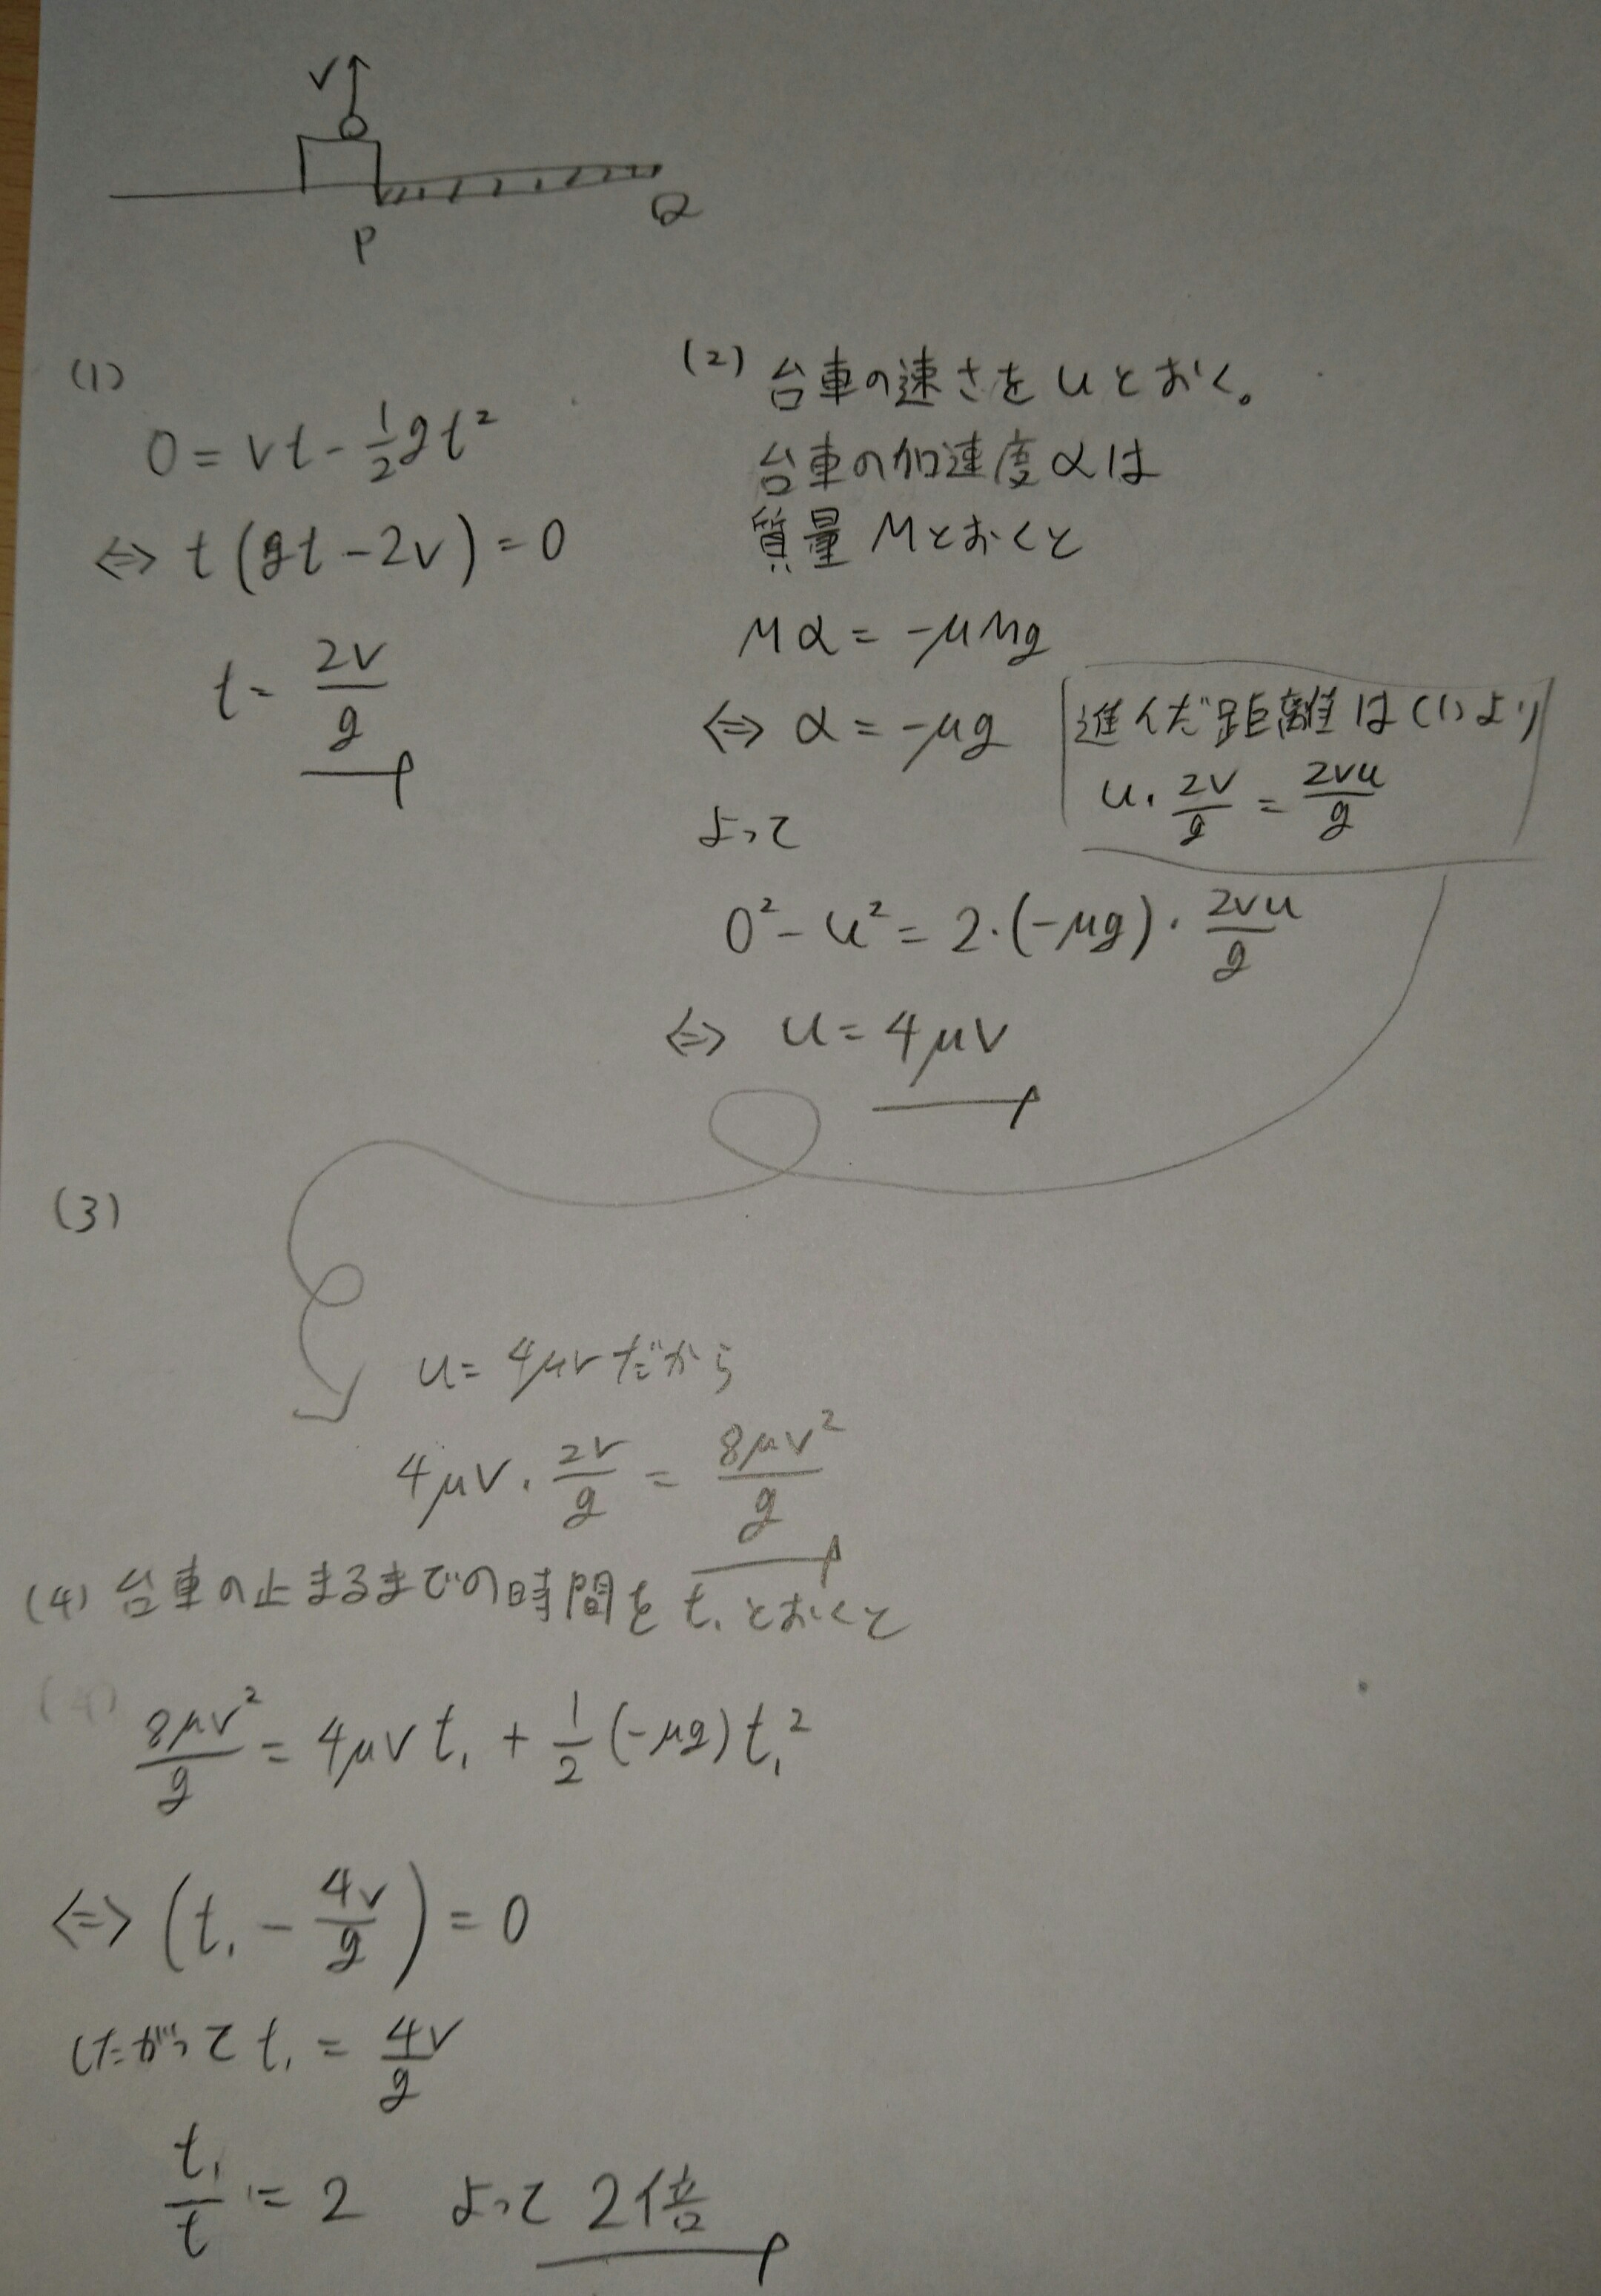 v
P
Q
(1)
0 = vt - 1/2 gt²
⇔ t(gt - 2v) = 0
t = 2v/g
(2) 台車の速さをuとおく。
台車の加速度αは
質量Mとおくと
Mα = -μMg
⇔ α = -μg
進んだ距離は(1)より
u・2v/g = 2vu/g
よって
0² - u² = 2・(-μg)・2vu/g
⇔ u = 4μv
(3)
u = 4μvだから
4μv・2v/g = 8μv²/g
(4) 台車の止まるまでの時間をt₁とおくと
8μv²/g = 4μv t₁ + 1/2 (-μg) t₁²
⇔ (t₁ - 4v/g) = 0
したがって t₁ = 4v/g
t₁/t = 2 よって 2倍